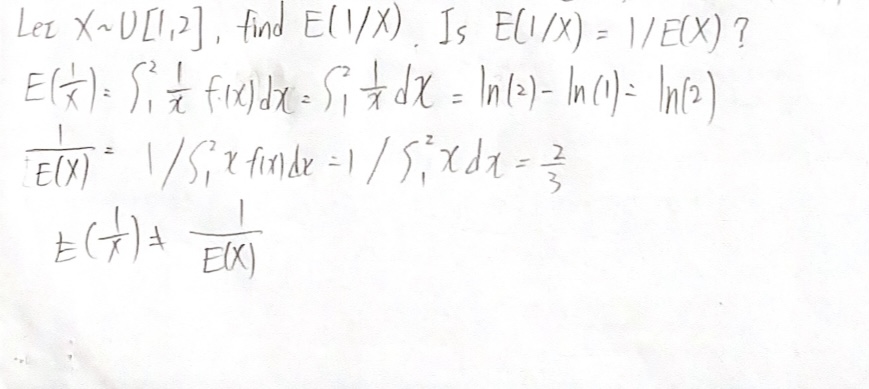 Let X~U[1,2], find E(1/X). Is E(1/X) = 1/E(X)?
E(1/x) = ∫₁² 1/x f(x)dx = ∫₁² 1/x dx = ln(2) - ln(1) = ln(2)
1/E(X) = 1/∫₁² x f(x)dx = 1/∫₁² x dx = 2/3
E(1/x) ≠ 1/E(X)